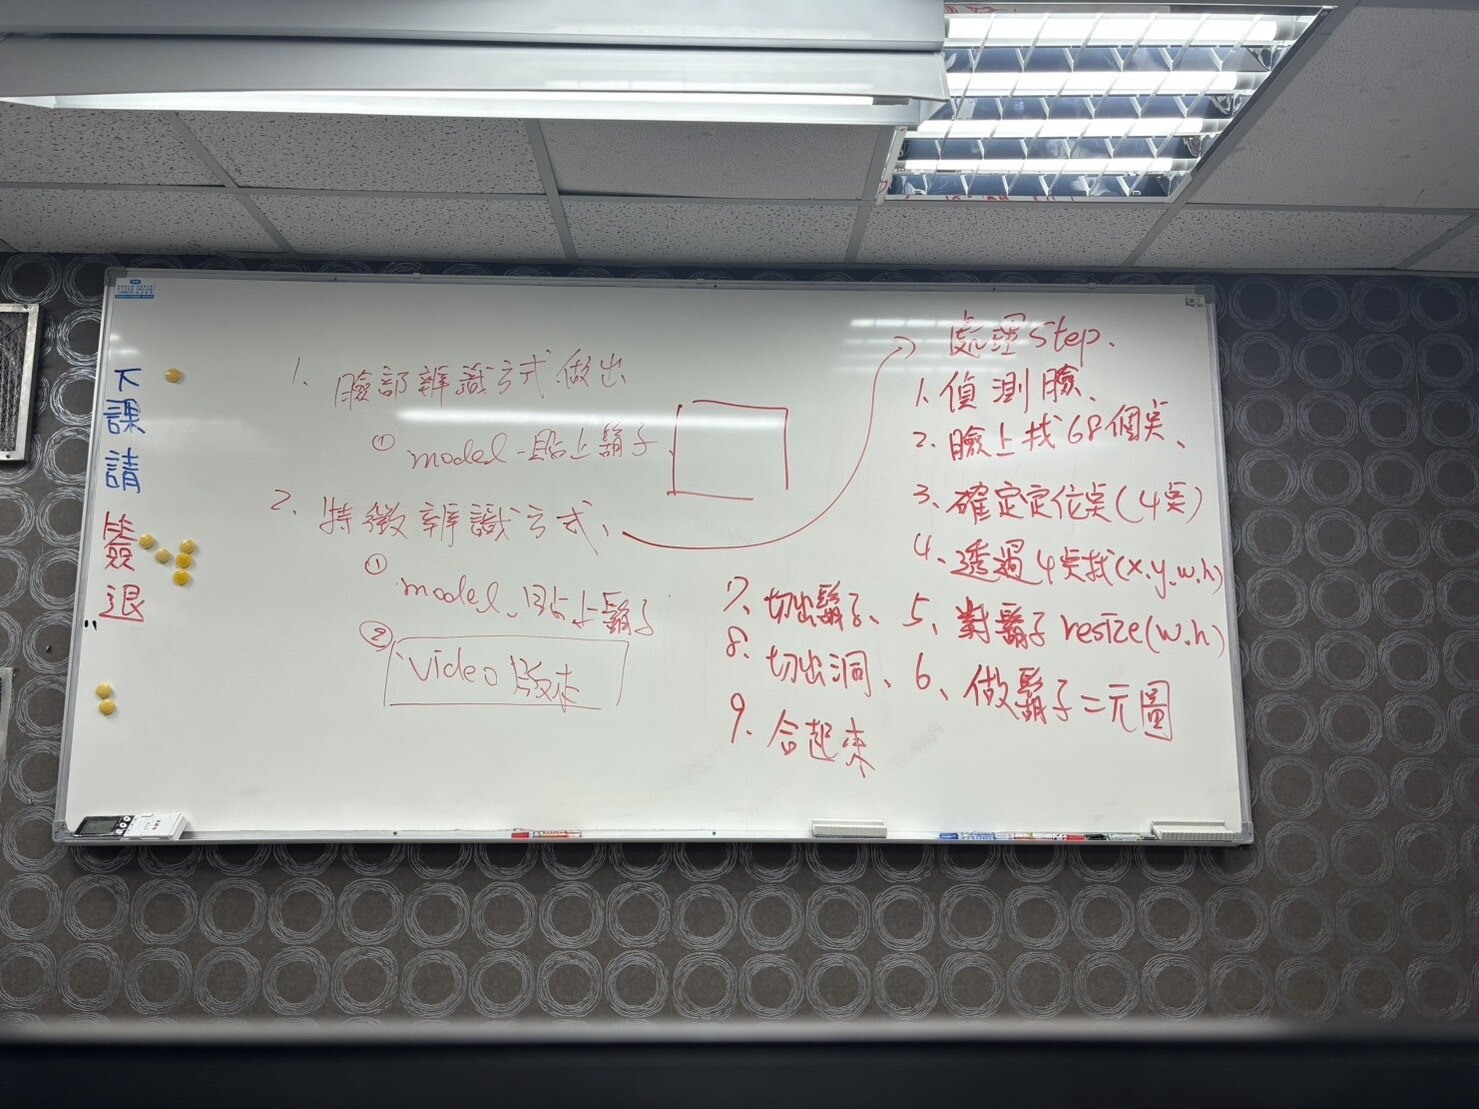 下課請簽退
1. 臉部辨識方式做出
① model 貼上鬍子
2. 特徵辨識方式、
① model、貼上鬍子
② video 版本
處理 step.
1. 偵測臉、
2. 臉上找68個点、
3. 確定定位点(4点)
4. 透過4点找(x.y.w.h)
5、對鬍子 resize(w.h)
6、做鬍子二元圖
7、切出鬍子、
8. 切出洞、
9. 合起來